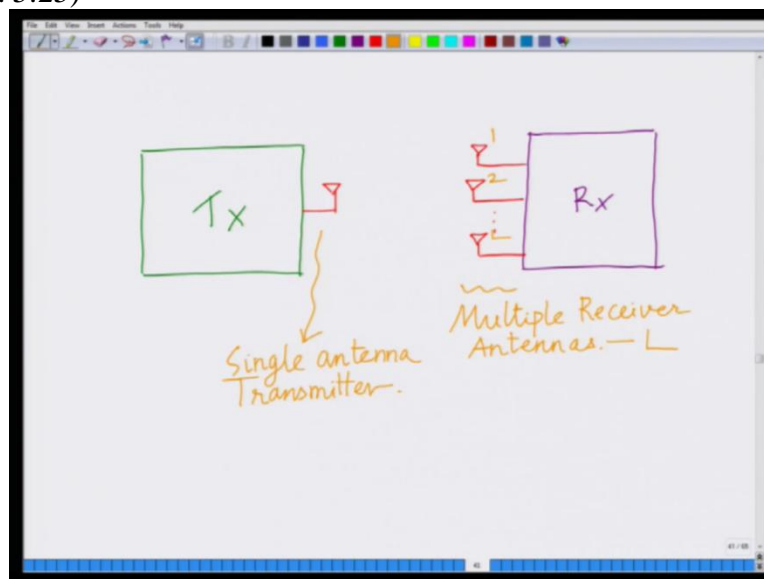 5:25)
File Edit View Insert Actions Tools Help
B I
Tx
1
2
⋮
L
Rx
Single antenna
Transmitter.
Multiple Receiver
Antennas. — L
41